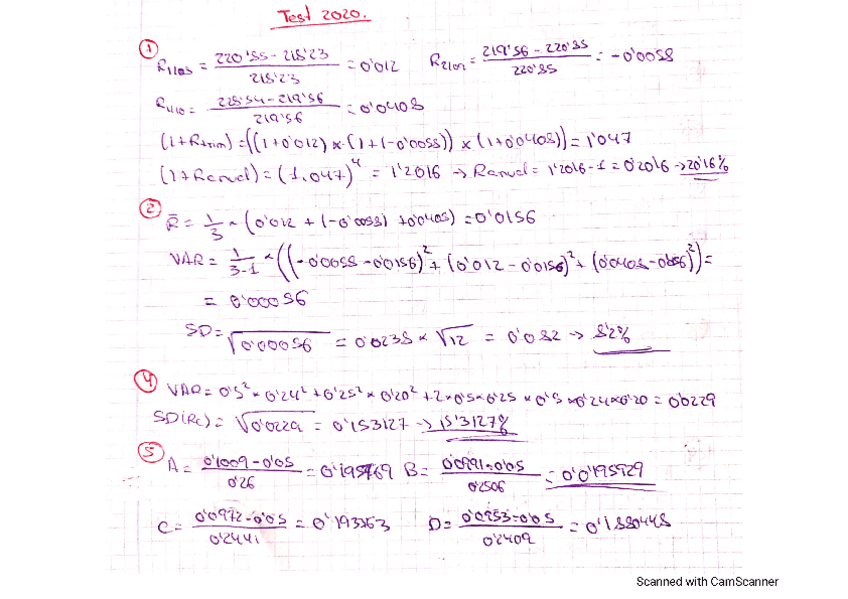 Test 2020.
① R1/03 = (220'85 - 218'23) / 218'23 = 0'012 R2/07 = (219'56 - 220'85) / 220'85 = -0'0058
R4/10 = (228'54 - 219'56) / 219'56 = 0'0408
(1+Rtrim) = ((1+0'012) x (1+(-0'0058)) x (1+0'0408)) = 1'047
(1+Ranual) = (1.047)^4 = 1'2016 → Ranual = 1'2016 - 1 = 0'2016 → 20'16%
② R̄ = 1/3 x (0'012 + (-0'0058) + 0'0408) = 0'0156
VAR = 1/(3-1) x ((-0'0058 - 0'0156)² + (0'012 - 0'0156)² + (0'0408 - 0'0156)²) =
= 0'00056
SD = √0'00056 = 0'0238 x √12 = 0'082 → 8'2%
④ VAR = 0'5² x 0'24² + 0'25² x 0'20² + 2 x 0'5 x 0'25 x 0'5 x 0'24 x 0'20 = 0'0229
SD(Rc) = √0'0229 = 0'153127 → 15'3127%
⑤ A = (0'1009 - 0'05) / 0'26 = 0'195769 B = (0'0991 - 0'05) / 0'2506 = 0'0195929
C = (0'0972 - 0'05) / 0'2441 = 0'193363 D = (0'0953 - 0'05) / 0'2409 = 0'1880448
Scanned with CamScanner